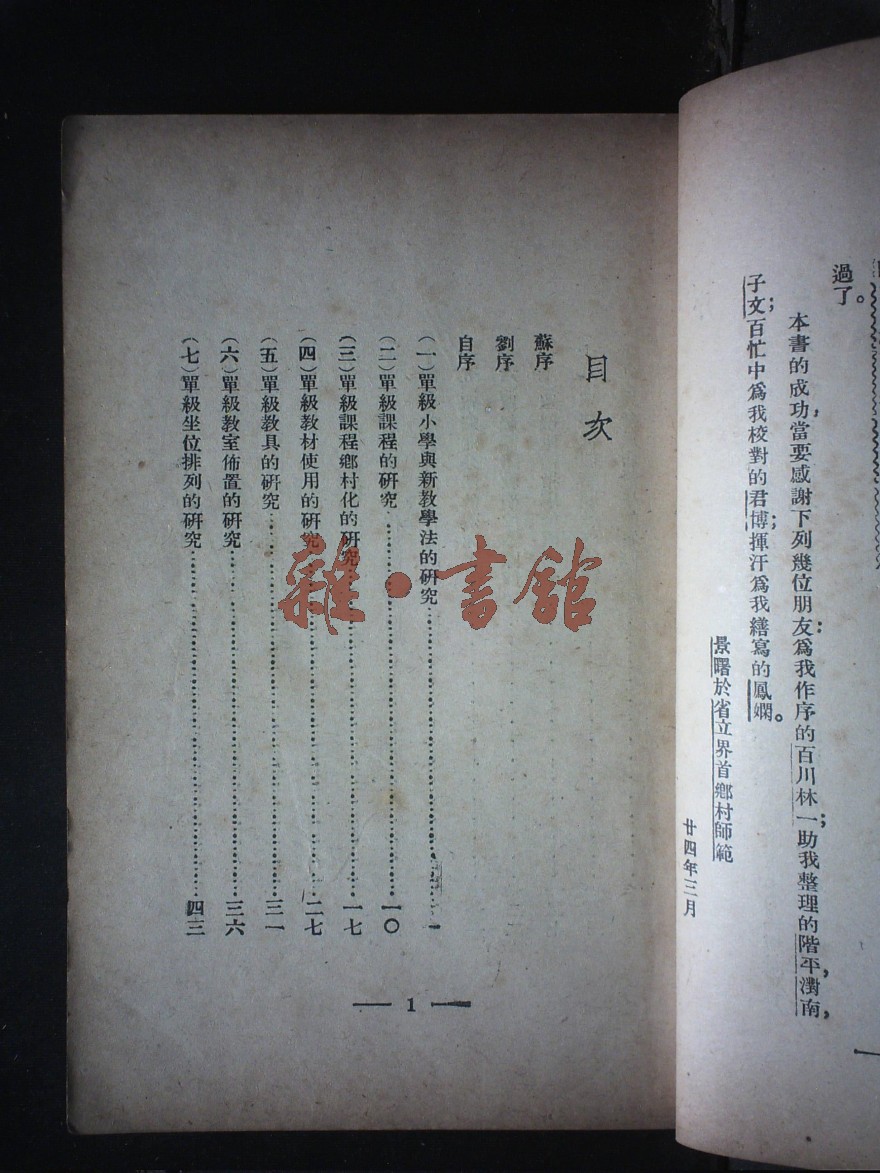 過了。
本書的成功,當要感謝下列幾位朋友:爲我作序的百川林一;助我整理的階平,瀏南,
子文;百忙中爲我校對的君博;揮汗爲我繕寫的鳳嫻。
景曙於省立界首鄉村師範
廿四年三月
目次
蘇序
劉序
自序
(一)單級小學與新教學法的研究……一
(二)單級課程的研究……一〇
(三)單級課程鄉村化的研究……一七
(四)單級教材使用的研究……二七
(五)單級教具的研究……三一
(六)單級教室佈置的研究……三六
(七)單級坐位排列的研究……四三
— 1 —
雜·書館